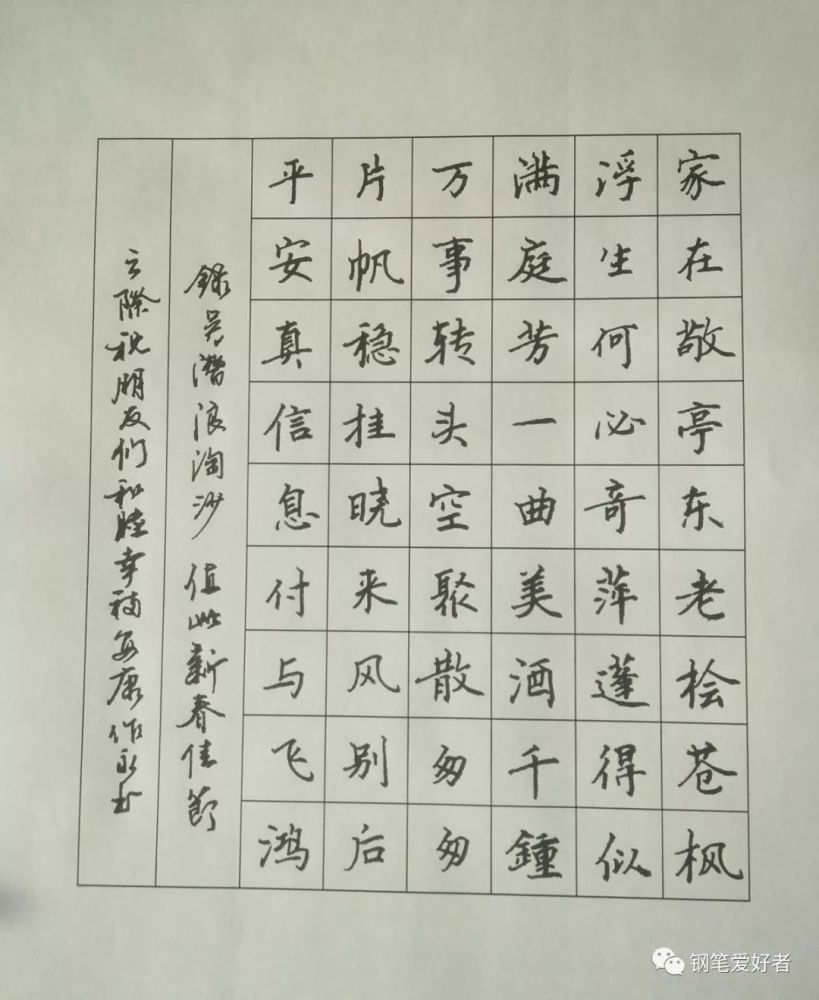 家在敬亭东老桧苍枫
浮生何必奇萍蓬得似
满庭芳一曲美酒千鍾
万事转头空聚散匆匆
片帆稳挂晓来风别后
平安真信息付与飞鸿
録吴潜浪淘沙 值此新春佳节
云際祝朋友们和睦幸福安康作永书
钢笔爱好者